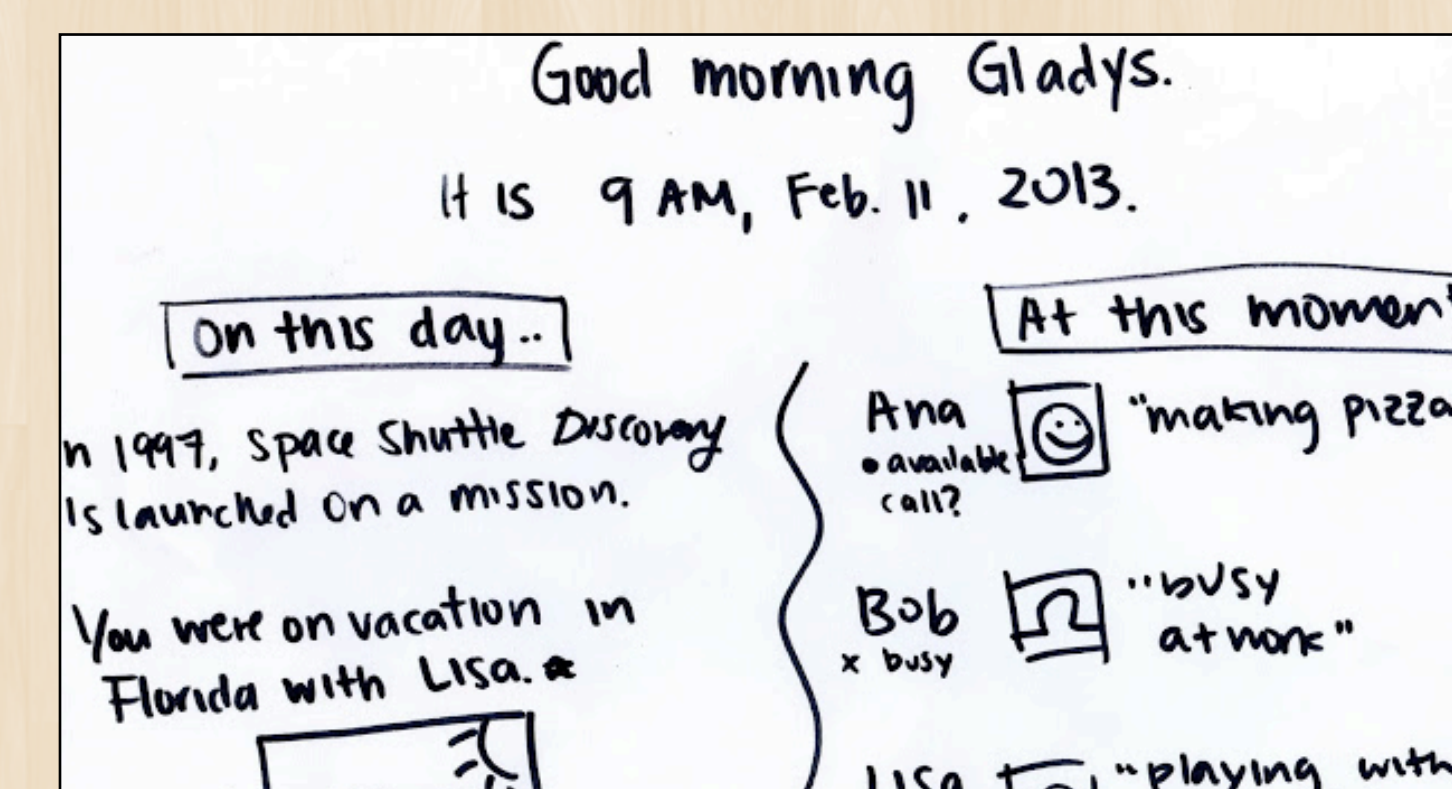 Good morning Gladys.
It is 9 AM, Feb. 11, 2013.
On this day..
n 1997, Space Shuttle Discovery
is launched on a mission.
You were on vacation in
Florida with Lisa.
At this moment
Ana
• available
call?
"making pizza
Bob
x busy
"busy
at work"
Lisa
"playing with